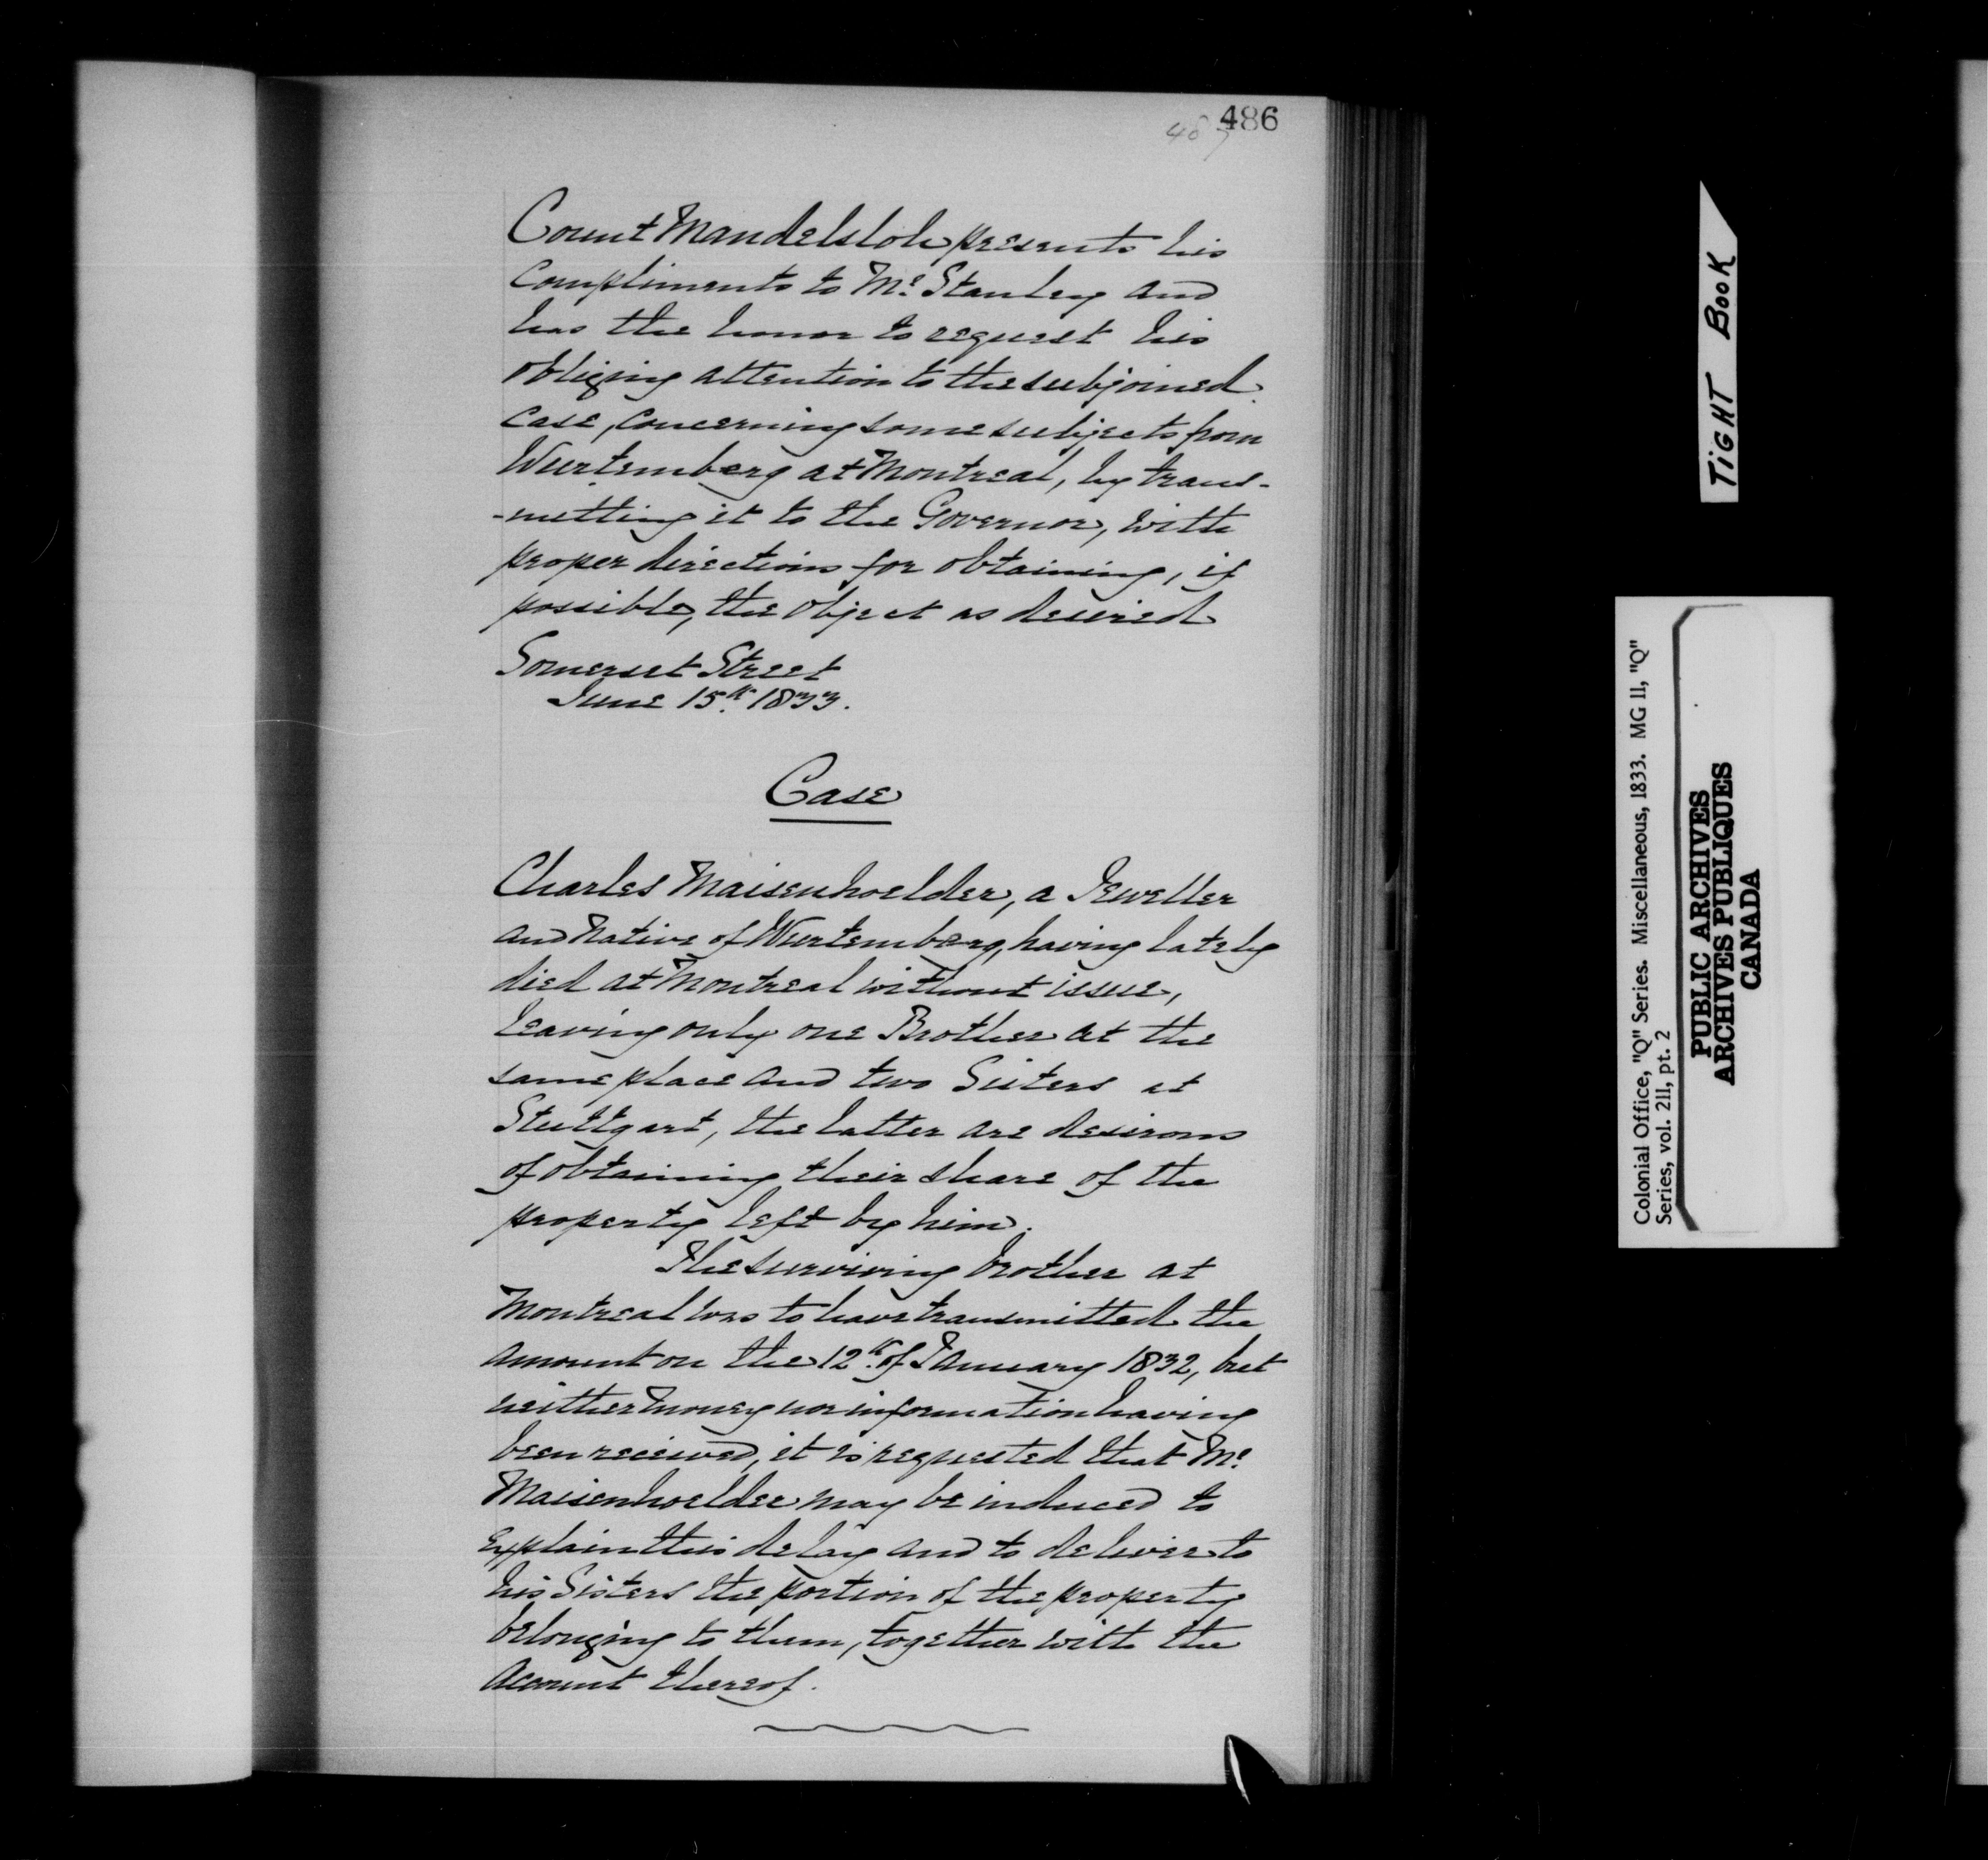 486
487
Count Mandelsloh presents his
compliments to Mr. Stanley and
has the honor to request his
obliging attention to the subjoined
case, concerning some subjects from
Wurtemberg at Montreal, by trans-
-mitting it to the Governor, with
proper directions for obtaining, if
possible, the object as desired
Somerset Street
June 15th 1833.
Case
Charles Maisenhoelder, a Jeweller
and Native of Wurtemberg, having lately
died at Montreal without issue,
leaving only one Brother at the
same place and two Sisters at
Stuttgart, the latter are desirous
of obtaining their share of the
property left by him.
The surviving brother at
Montreal was to have transmitted the
amount on the 12th of January 1832, but
neither money nor information having
been received, it is requested that Mr.
Maisenhoelder may be induced to
explain this delay and to deliver to
his Sisters the portion of the property
belonging to them, together with the
account thereof.
TIGHT BOOK
Colonial Office, "Q" Series. Miscellaneous, 1833. MG 11, "Q"
Series, vol. 211, pt. 2
PUBLIC ARCHIVES
ARCHIVES PUBLIQUES
CANADA